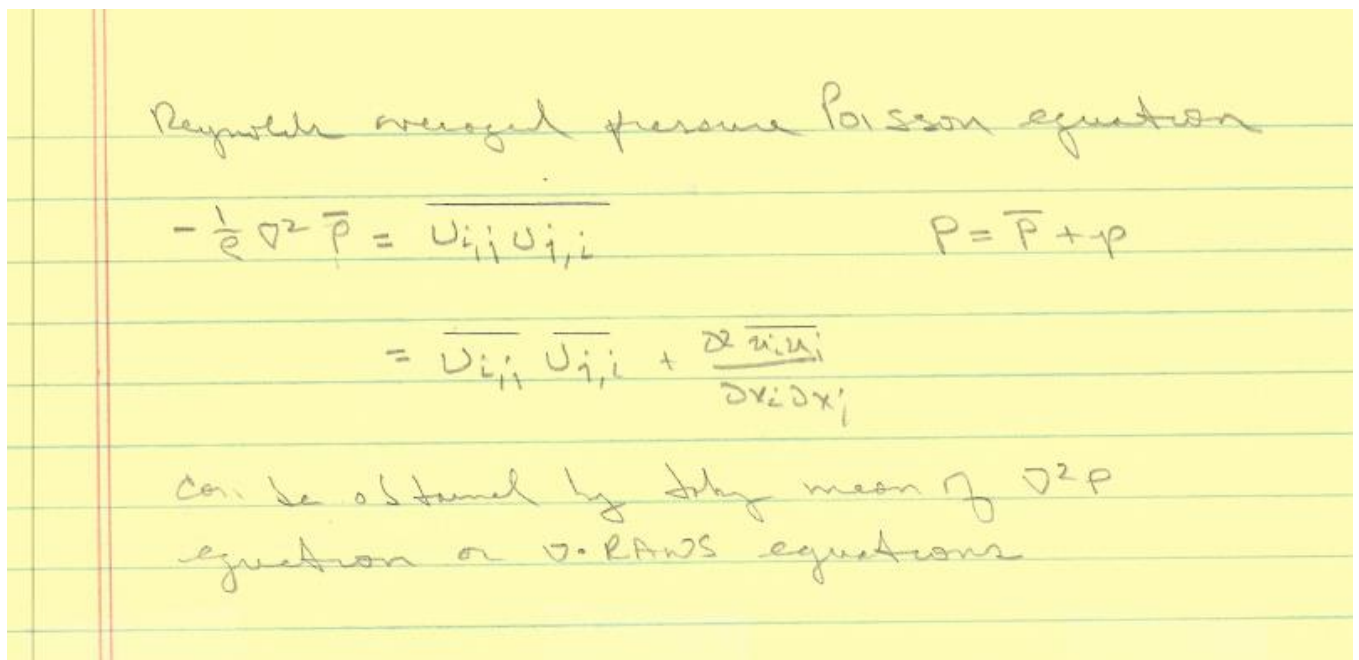 Reynolds averaged pressure Poisson equation
-1/ρ ∇² p̅ = \overline{U_{i,j} U_{j,i}}    P = P̅ + p
= \overline{U_{i,j}} \overline{U_{j,i}} + ∂² \overline{u_i u_j} / ∂x_i ∂x_j
Can be obtained by taking mean of ∇²p
equation or ∇· RANS equations